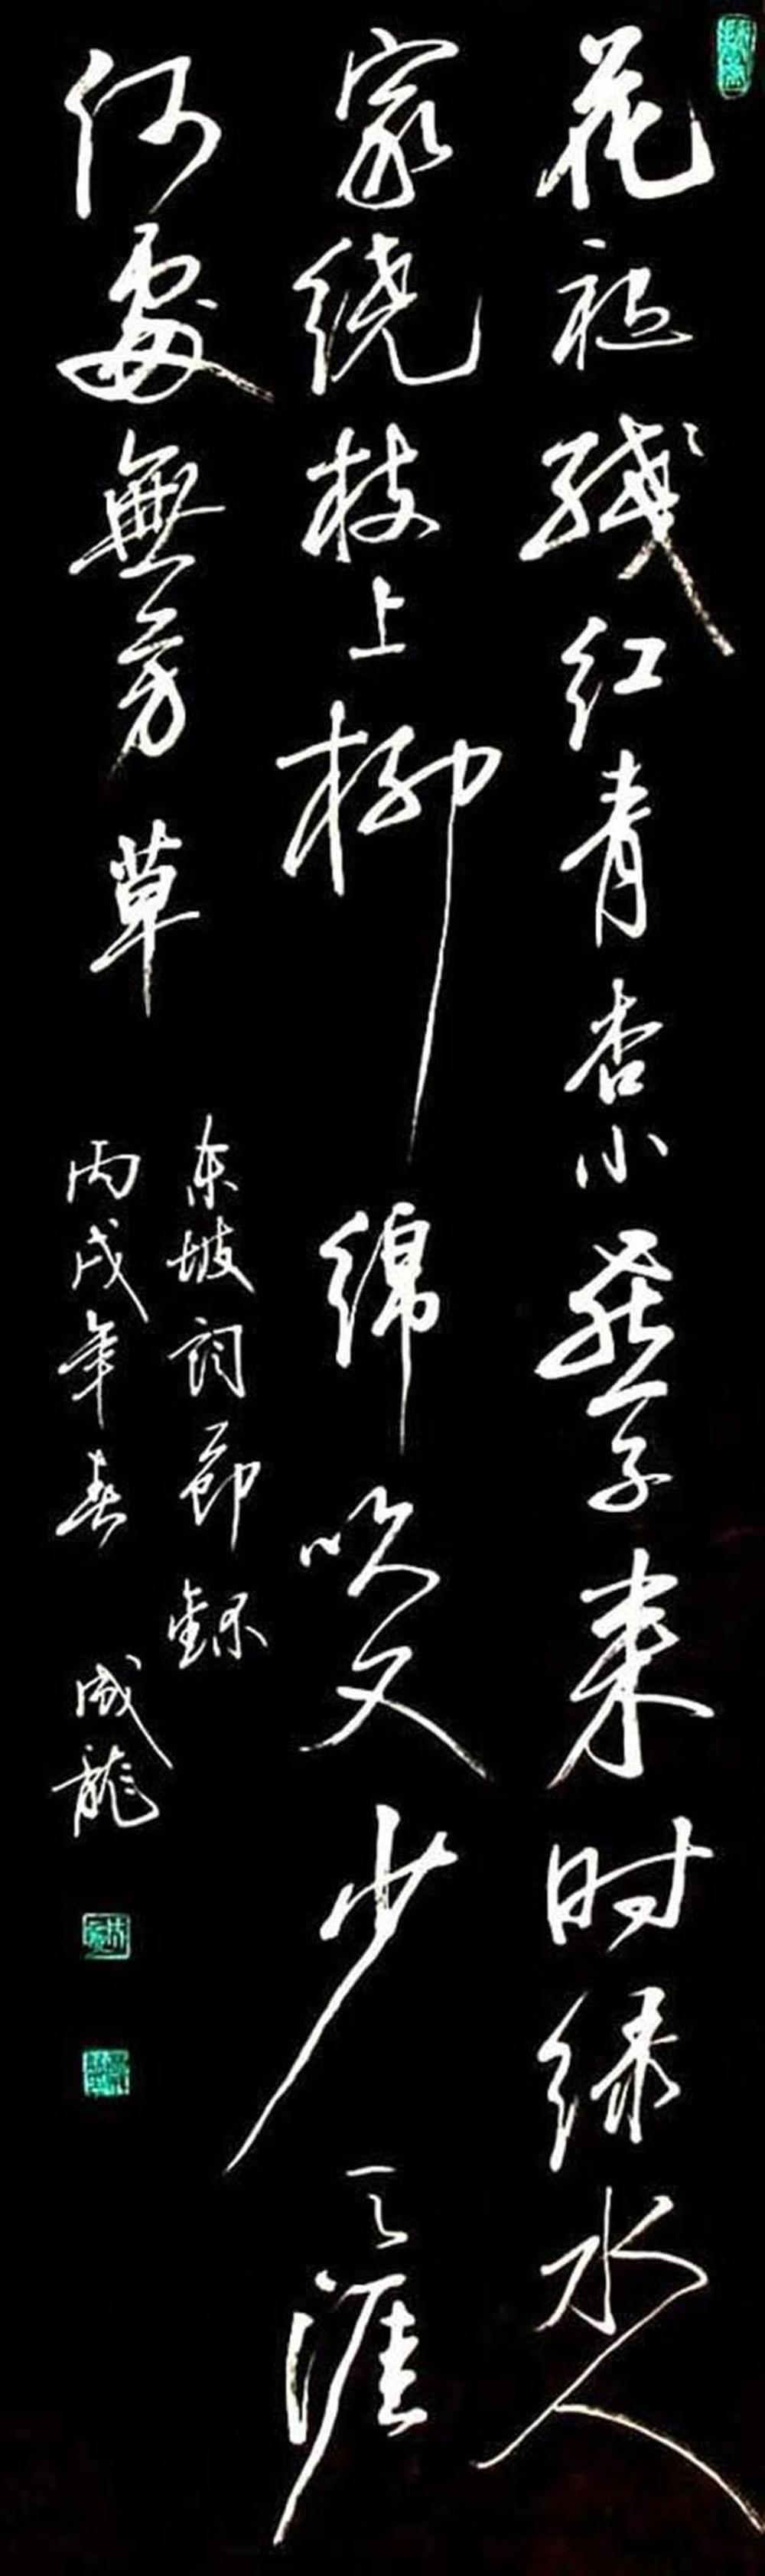 花褪残红青杏小燕子来时绿水人
家绕枝上柳绵吹又少天涯
何處無芳草
东坡词節録
丙戌年春 成龍